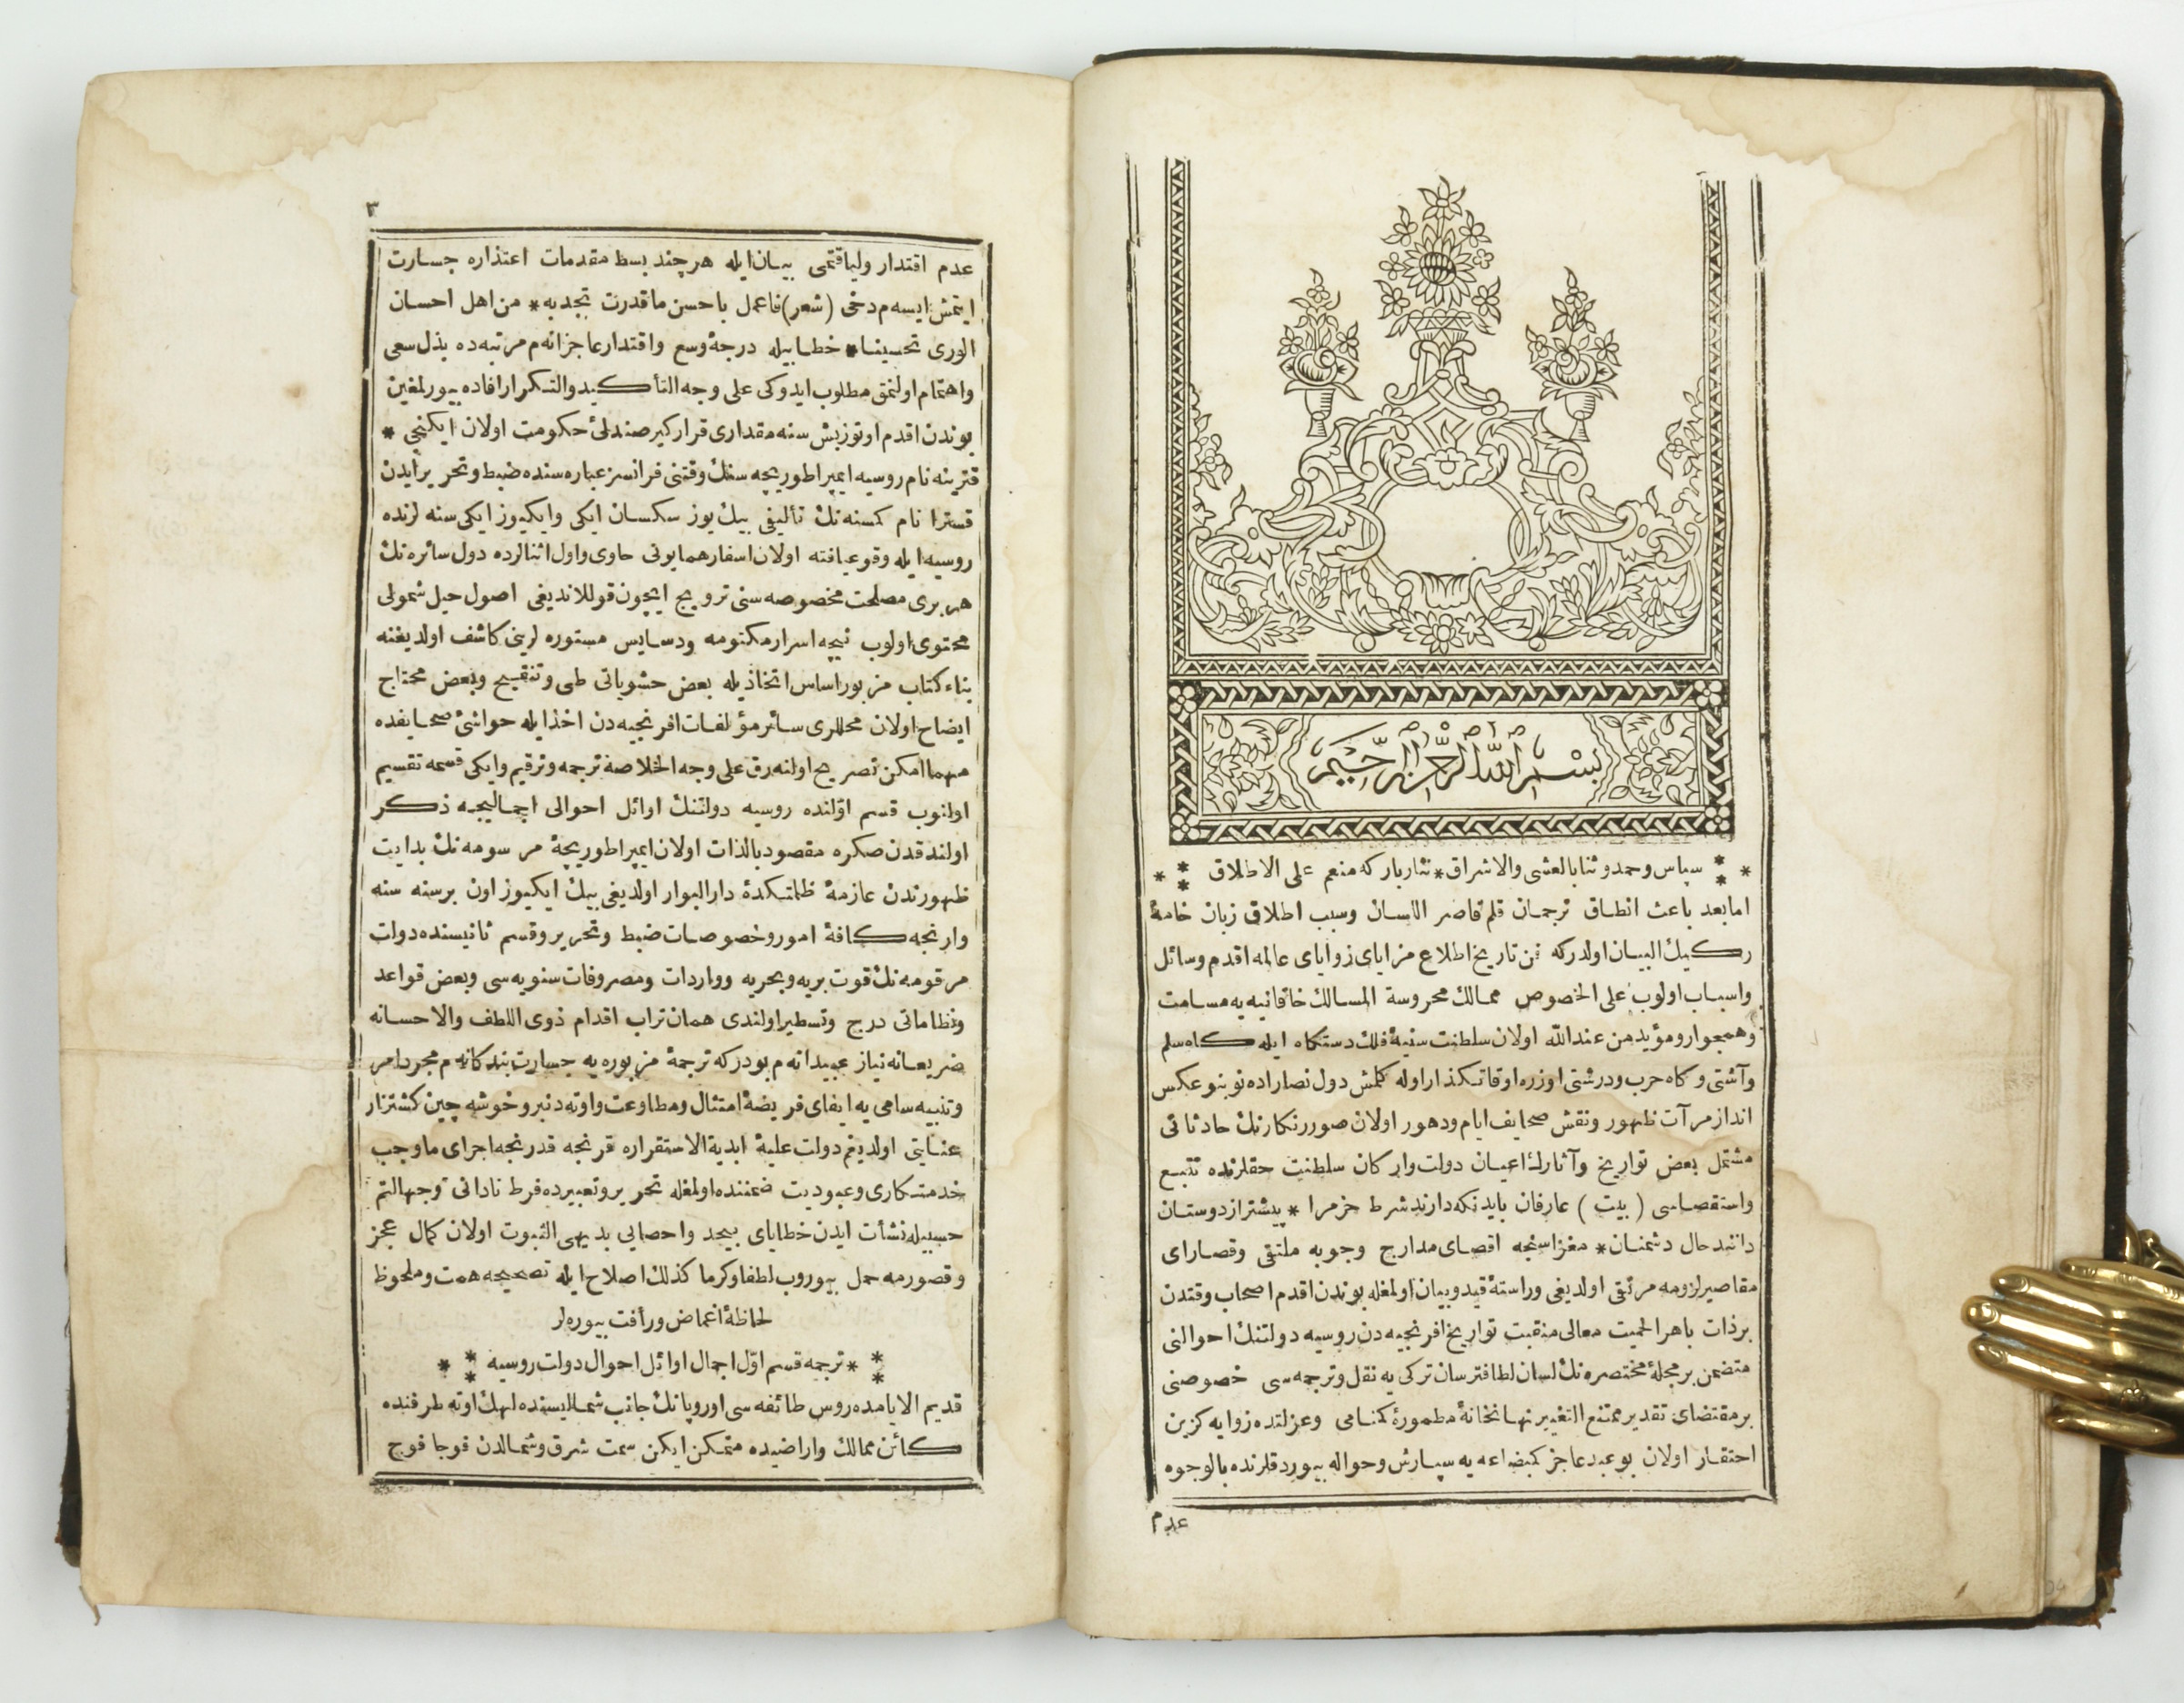 بسم الله الرحمن الرحيم
* سپاس وحمد وثنا بالعشی والاشراق * نثار بارکه منعم علی الاطلاق *
امابعد باعث انطاق ترجمان قلم قاصر اللسان وسبب اطلاق زبان خامهٔ
رکیك البیان اولدرکه فن تاریخ اطلاع مزایای زوایای عالمه اقدم وسائل
واسباب اولوب علی الخصوص ممالك محروسة المسالك خاقانیه یه مسامت
وهمجوار ومؤید من عندالله اولان سلطنت سنیهٔ فلك دستكاه ایله كاه سلم
وآشتی وكاه حرب ودرشتی اوزره اوقاتكذار اوله كلمش دول نصاراده نوبنو عكس
انداز مرآت ظهور ونقش صحایف ایام ودهور اولان صور رنكارنك حادثاتی
مشتمل بعض تواریخ وآثارك اعیان دولت واركان سلطنت حقلرنده تتبع
واستقصاسی ( بیت ) عارفان باید نكه دارند شرط حزم را * پیشتر از دوستان
دانند حال دشمنان * مغزاسنجه اقصای مدارج وجوبه ملتقی وقصارای
مقاصیر لزومه مرتقی اولدیغی وراستهٔ قید وبیان اولمغله بوندن اقدم اصحاب وقتدن
برذات باهر الحمیت معالی منقبت تواریخ افرنجیه دن روسیه دولتنك احوالنی
متضمن بر مجلهٔ مختصره نك لسان لطافترسان تركی یه نقل وترجمه سی خصوصنی
برمقتضای تقدیر ممتنع التغییر نهانخانهٔ مطمورهٔ كمنامی وعزلتده زوایه كزین
احتقار اولان بو عبد عاجز كمبضاعه یه سپارش وحواله بیوردقلرنده بالوجوه
عدم
٣
عدم اقتدار ولیاقتمی بیان ایله هرچند بسط مقدمات اعتذاره جسارت
ایتمش ایسه م دخی (شعر) فاعمل باحسن ماقدرت تجدبه * من اهل احسان
الوری تحسینا * خطابیله درجهٔ وسع واقتدار عاجزانه م مرتبه ده بذل سعی
واهتمام اولنمق مطلوب ایدوكی علی وجه التأكید والتكرار افاده بیورلمغین
بوندن اقدم اوتوز بش سنه مقداری قراركیر صندلئ حكومت اولان ایكنجی *
قترینه نام روسیه ایمپراطوریچه سنك وقتنی فرانسز عباره سنده ضبط وتحریر ایدن
قسترا نام كمسنه نك تألیفی بیك یوز سكسان ایكی وایكیوز ایكی سنه لرنده
روسیه ایله وقوعیافته اولان اسفار همایونی حاوی واول اثنالرده دول سائره نك
هر بری مصلحت مخصوصه سنی ترویج ایچون قوللاندیغی اصول حیل شمولی
محتوی اولوب نیچه اسرار مكتومه ودسایس مستوره لرینی كاشف اولدیغنه
بناء كتاب مزبور اساس اتخاذیله بعض حشویاتی طی وتنقیح وبعض محتاج
ایضاح اولان محللری سائر مؤلفات افرنجیه دن اخذ ایله حواشئ صحایفده
مهما امكن تصریح اولنه رق علی وجه الخلاصة ترجمه وترقیم وایكی قسمه تقسیم
اولنوب قسم اولنده روسیه دولتنك اوائل احوالی اجمالیجه ذكر
اولندقدن صكره مقصود بالذات اولان ایمپراطوریچهٔ مرسومه نك بدایت
ظهورندن عازمهٔ ظلمتكدهٔ دار البوار اولدیغی بیك ایكیوز اون برسنه سنه
وارنجه كافهٔ امور وخصوصات ضبط وتحریر وقسم ثانیسنده دولت
مرقومه نك قوت بریه وبحریه وواردات ومصروفات سنویه سی وبعض قواعد
ونظاماتی درج وتسطیر اولندی همان تراب اقدام ذوی اللطف والاحسانه
ضریعانه نیاز عبیدانه م بودركه ترجمهٔ مزبوره یه جسارت بندكانه م مجرد امر
وتنبیه سامی یه ایفای فریضهٔ امتثال ومطاوعت واوته دنبرو خوشه چین كشتزار
عنایتی اولدیغم دولت علیهٔ ابدیة الاستقراره قرنجه قدرنجه اجرای ماوجب
خدمتكاری وعبودیت ضمننده اولمغله تحریر وتعبیرده فرط نادانی وجهالتم
حسبیله نشأت ایدن خطایای بیحد واحصایی بدیهی الثبوت اولان كمال عجز
وقصورمه حمل بیوروب لطفا وكرما كذلك اصلاح ایله تصحیحه همت وملحوظ
لحاظهٔ اغماض ورأفت بیوره لر
* ترجمه قسم اول اجمال اوائل احوال دولت روسیه *
قدیم الایامده روس طائفه سی اوروپانك جانب شمالیسنده لهك اوته طرفنده
كائن ممالك واراضیده متمكن ایكن سمت شرق وشمالدن فوجا فوج